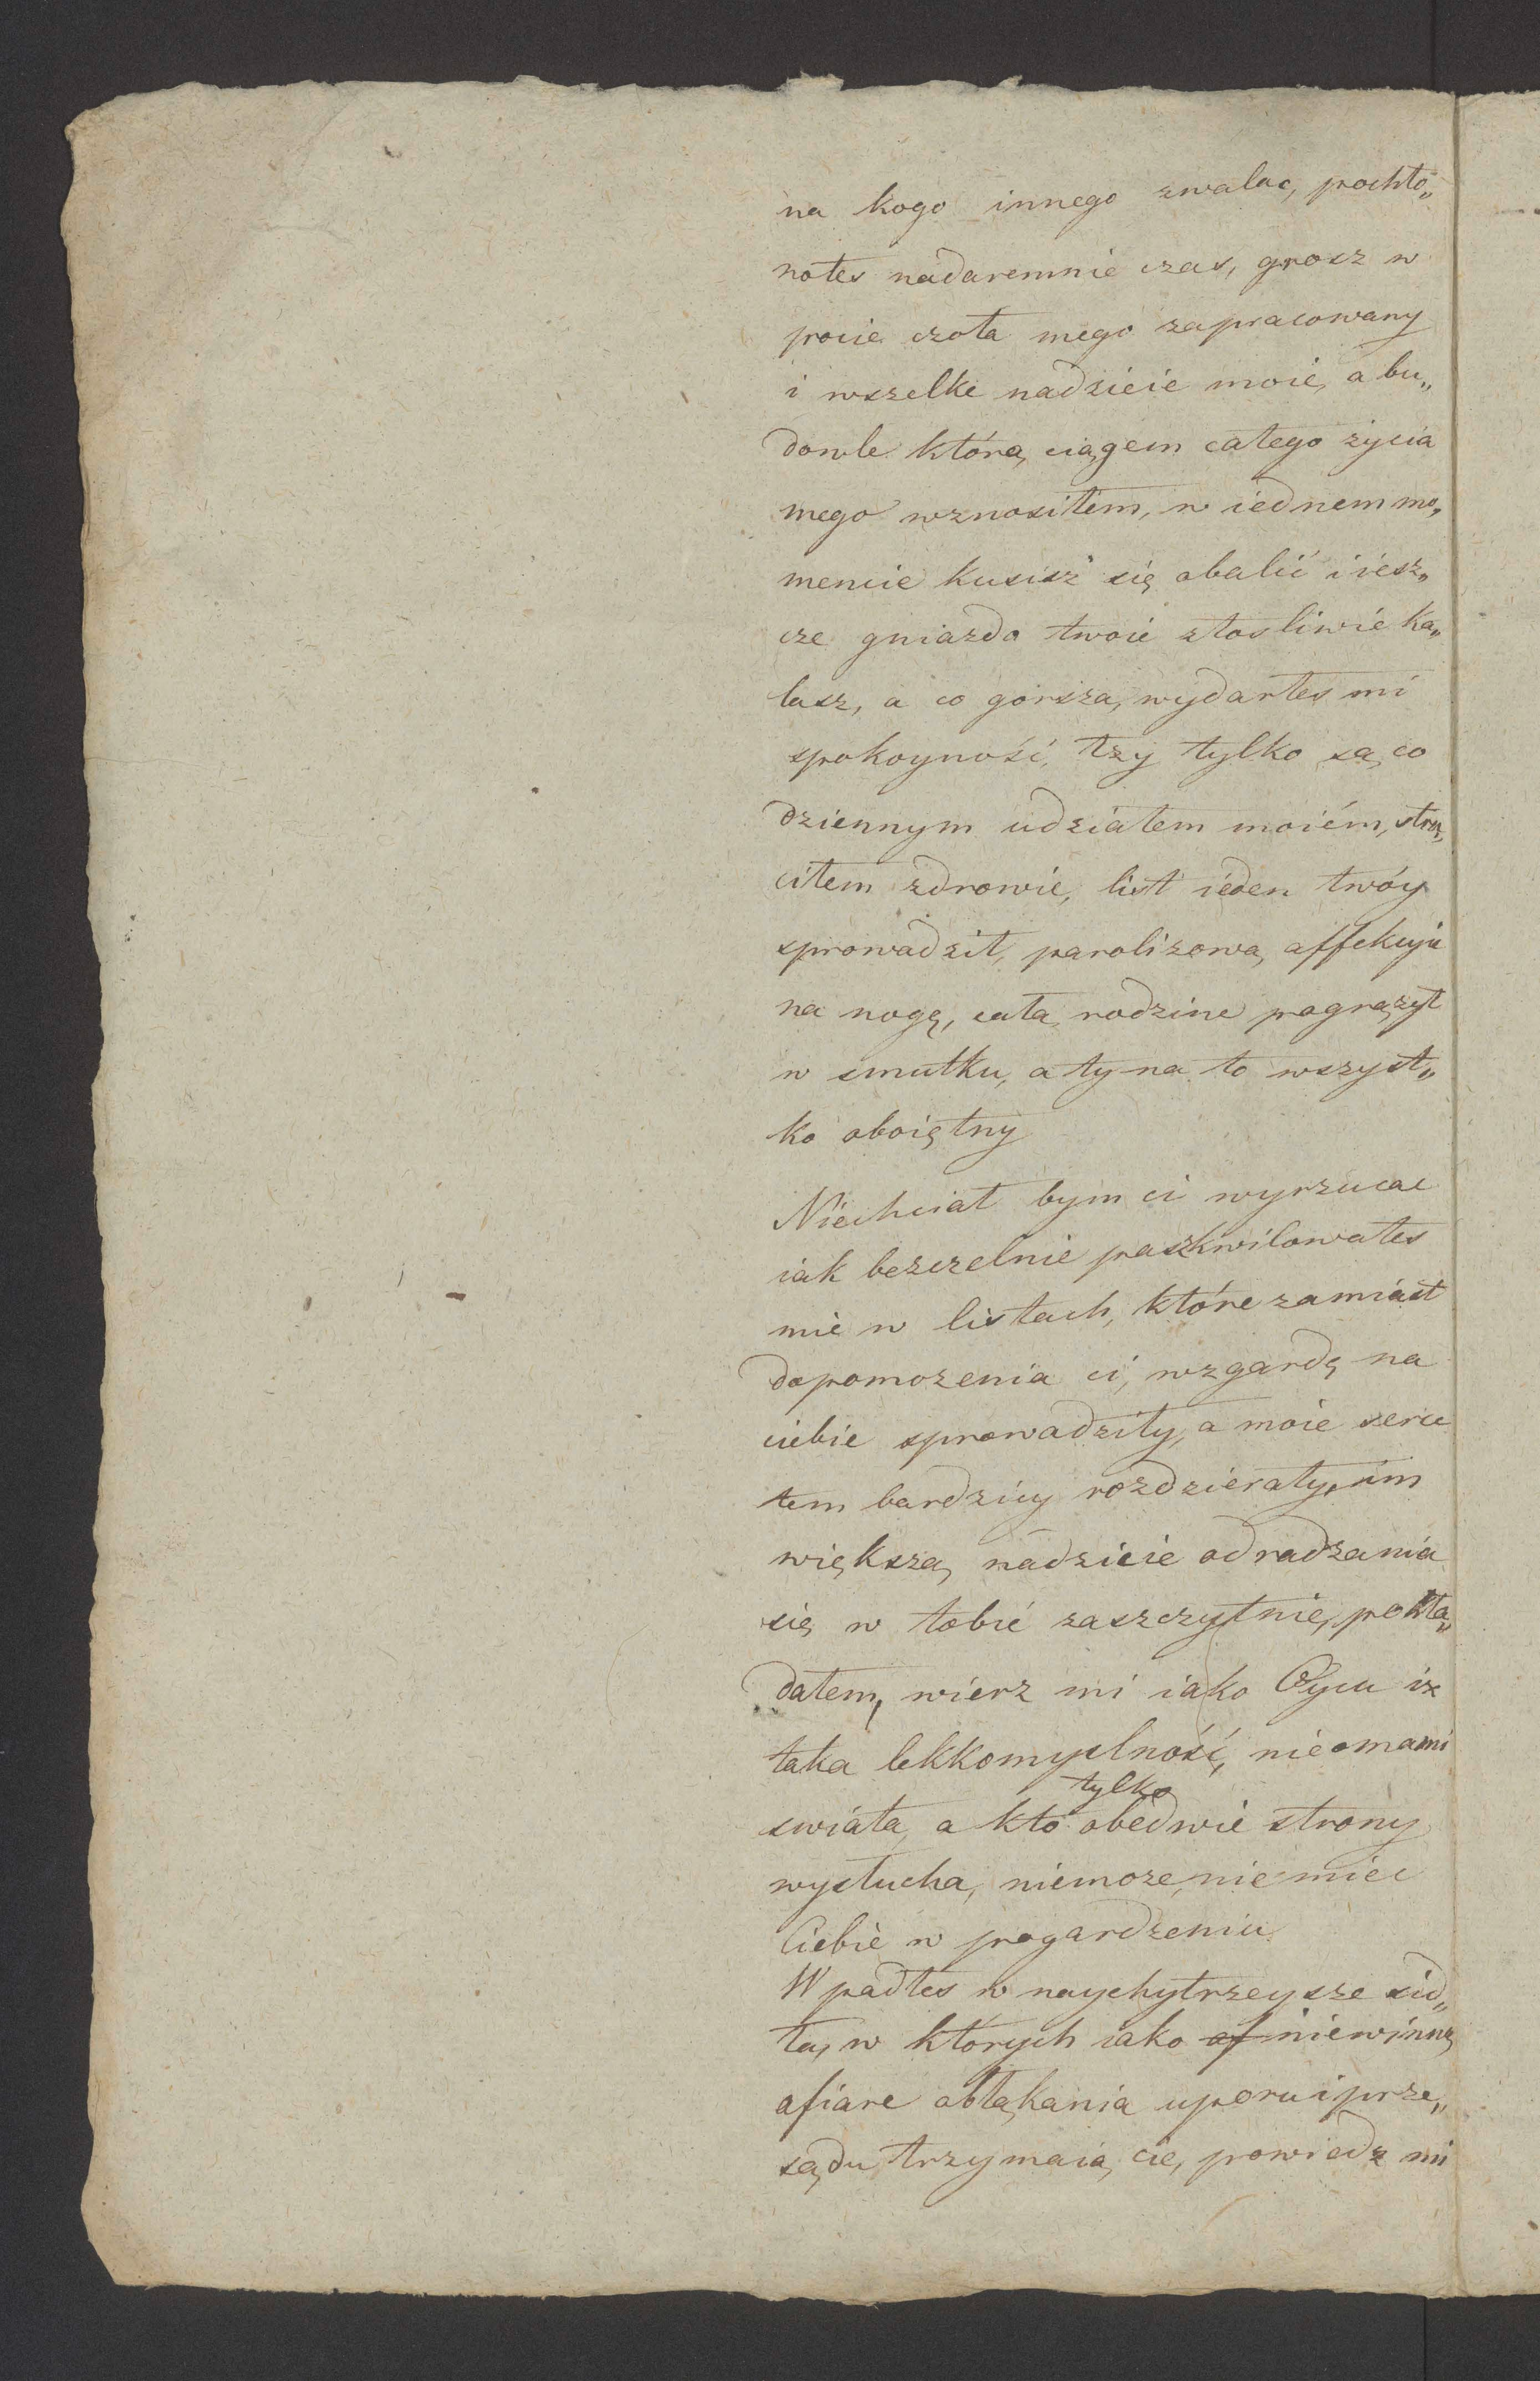 na kogo innego zwalac, pochło„
nołes nadaremnie czas, grosz w
pocie czoła mego zapracowany
i wszelke nadzieie moie, a bu„
dowle którą ciągem całego życia
mego wznosiłem, w iednem mo„
mencie kusisz się obalić i iesz„
cze gniazdo twoie złosliwie ka„
lasz, a co gorsza, wydarłes mi
spokoyność, łzy tylko są co
dziennym udziałem moiém, stra„
ciłem zdrowie, list ieden twóy
sprowadził, paroliżową affekcyie
na nogę, całą rodzine pogrążył
w smutku, a ty na to wszyst„
ko oboiętny
Niechciał bym ci wyrzucac
iak bezczelnie paszkwilowałes
mie w listach, które zamiast
dopomożenia ci, wzgardę na
ciebie sprowadziły, a moie serce
tem bardziey rozdzierały, im
większą nadzieie odradzania
się w tobie zaszczytnie, pokła„
dałem, wierz mi iako Oycu iż
taka lekkomyslność, nie omami
swiata, a kto tylko obedwie strony
wysłucha, niemoże, nie miec
Ciebie w pogardzeniu
Wpadłes w naychytrzeysze sid„
ła, w których iako of niewinną
ofiare obłąkania uporu i prze„
sądu trzymaią cie, powiedz mi